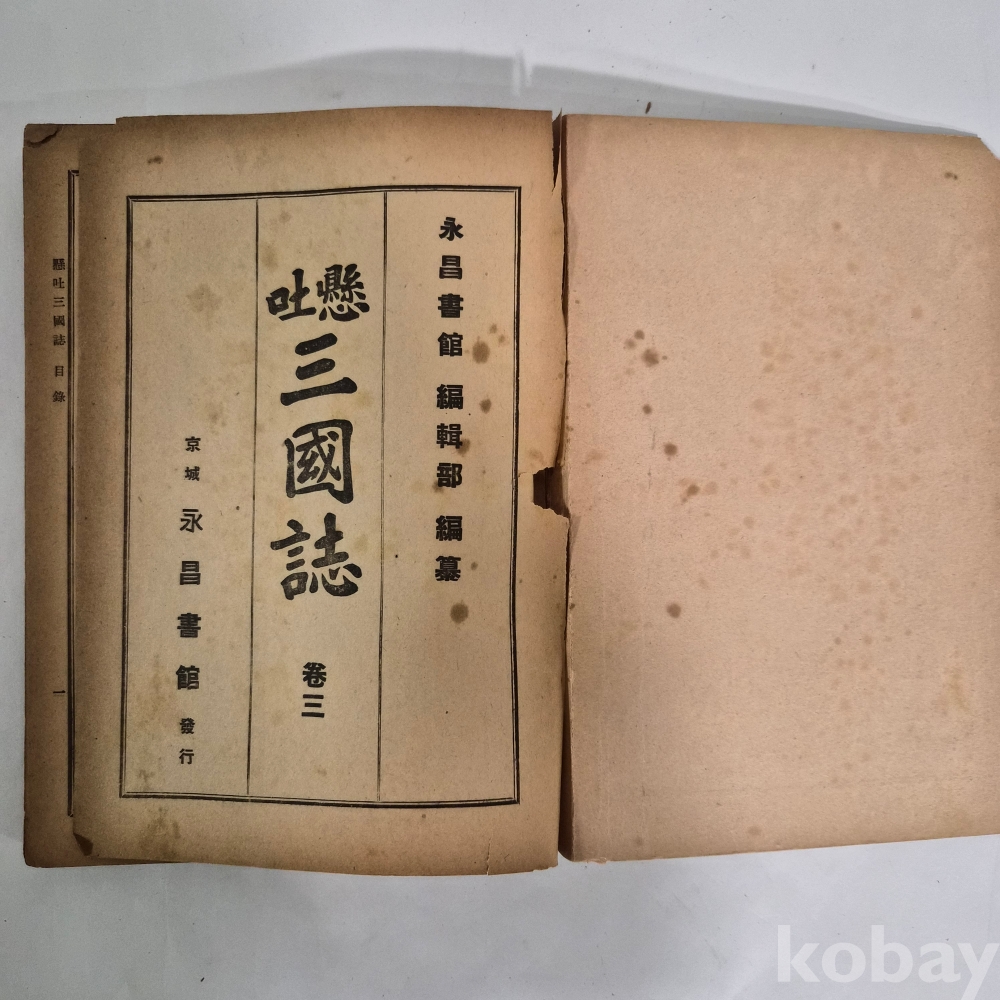 永昌書館 編輯部 編纂
懸吐
三國誌 卷三
京城 永昌書館 發行
懸吐三國誌 目錄 一
kobay